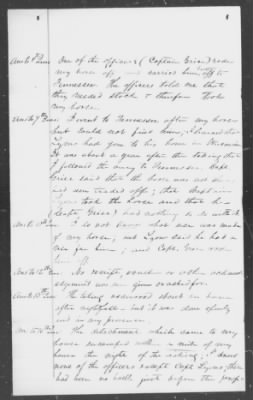 Ans to 6th Int One of the officers (Captain Grice) rode
my horse off and carried him off to
Tennessee. The officers told me that
they needed stock & therefore took
my horse.
Ans to 7th Int I went to Tennessee after my horse
but could not find him; Captain
Lyons had him to his home in
It was about a year after the taking that
I followed the army to Tennessee. Capt
Grice said that the horse was not
traded off; that Captain
Lyons took the horse and that he
(Capt. Grice) had nothing to do with it
Ans to I do not know what use was made
of my horse, but Lyons said he had a
use for him; and Capt. Grice rode
him off.
Ans to 12th Int No receipt, voucher or other acknowl
edgment was given or asked for.
Ans to 13th Int The taking occurred about an hour
after nightfall but it was done openly
and in my presence.
Ans to 14 Int The detachment which came to my
house encamped within a mile of my
house the night of the taking; I knew
none of the officers except Capt Lyons; there
had been no battle just before the